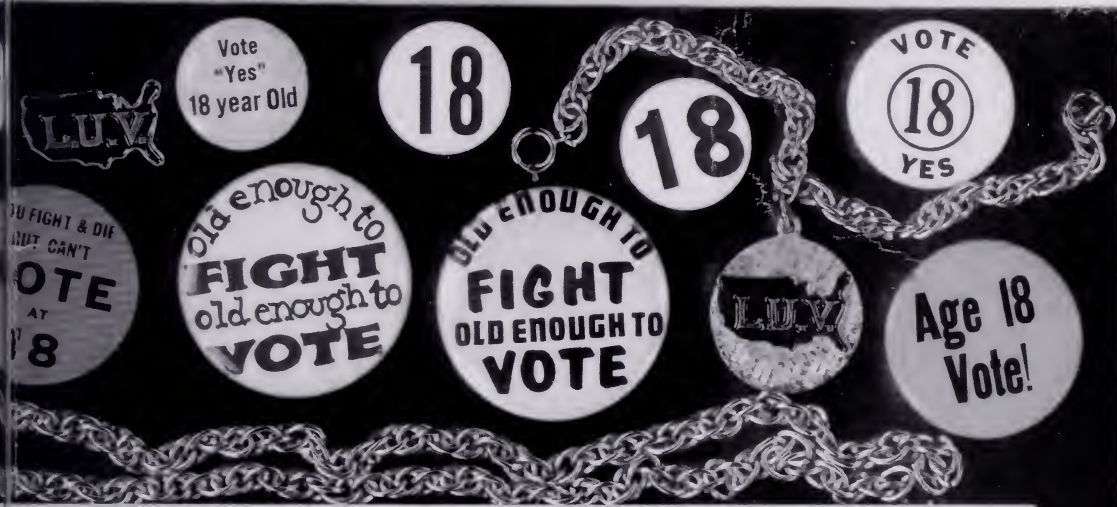 L.U.V.
Vote
"Yes"
18 year Old
18
18
VOTE
18
YES
FIGHT & DIE
CAN'T
AT
old enough to
FIGHT
old enough to
VOTE
OLD ENOUGH TO
FIGHT
OLD ENOUGH TO
VOTE
L.U.V.
Age 18
Vote!